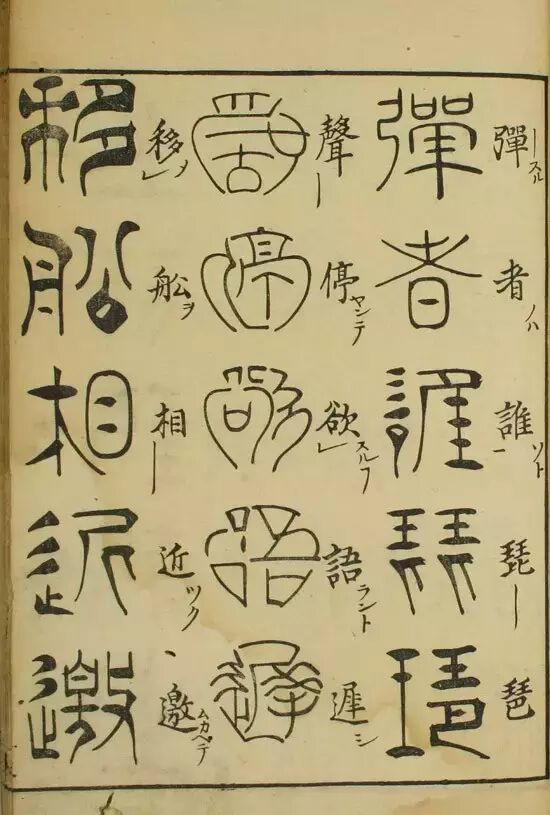 彈ースル者ノハ誰ソト琵ー琶
彈者誰琵琶
聲ー停ヤンテ欲スルフ語ラント遲シ
聲停欲語遲
移ノ舩ヲ相ー近ツク、邀ムカヘテ
移舩相近邀